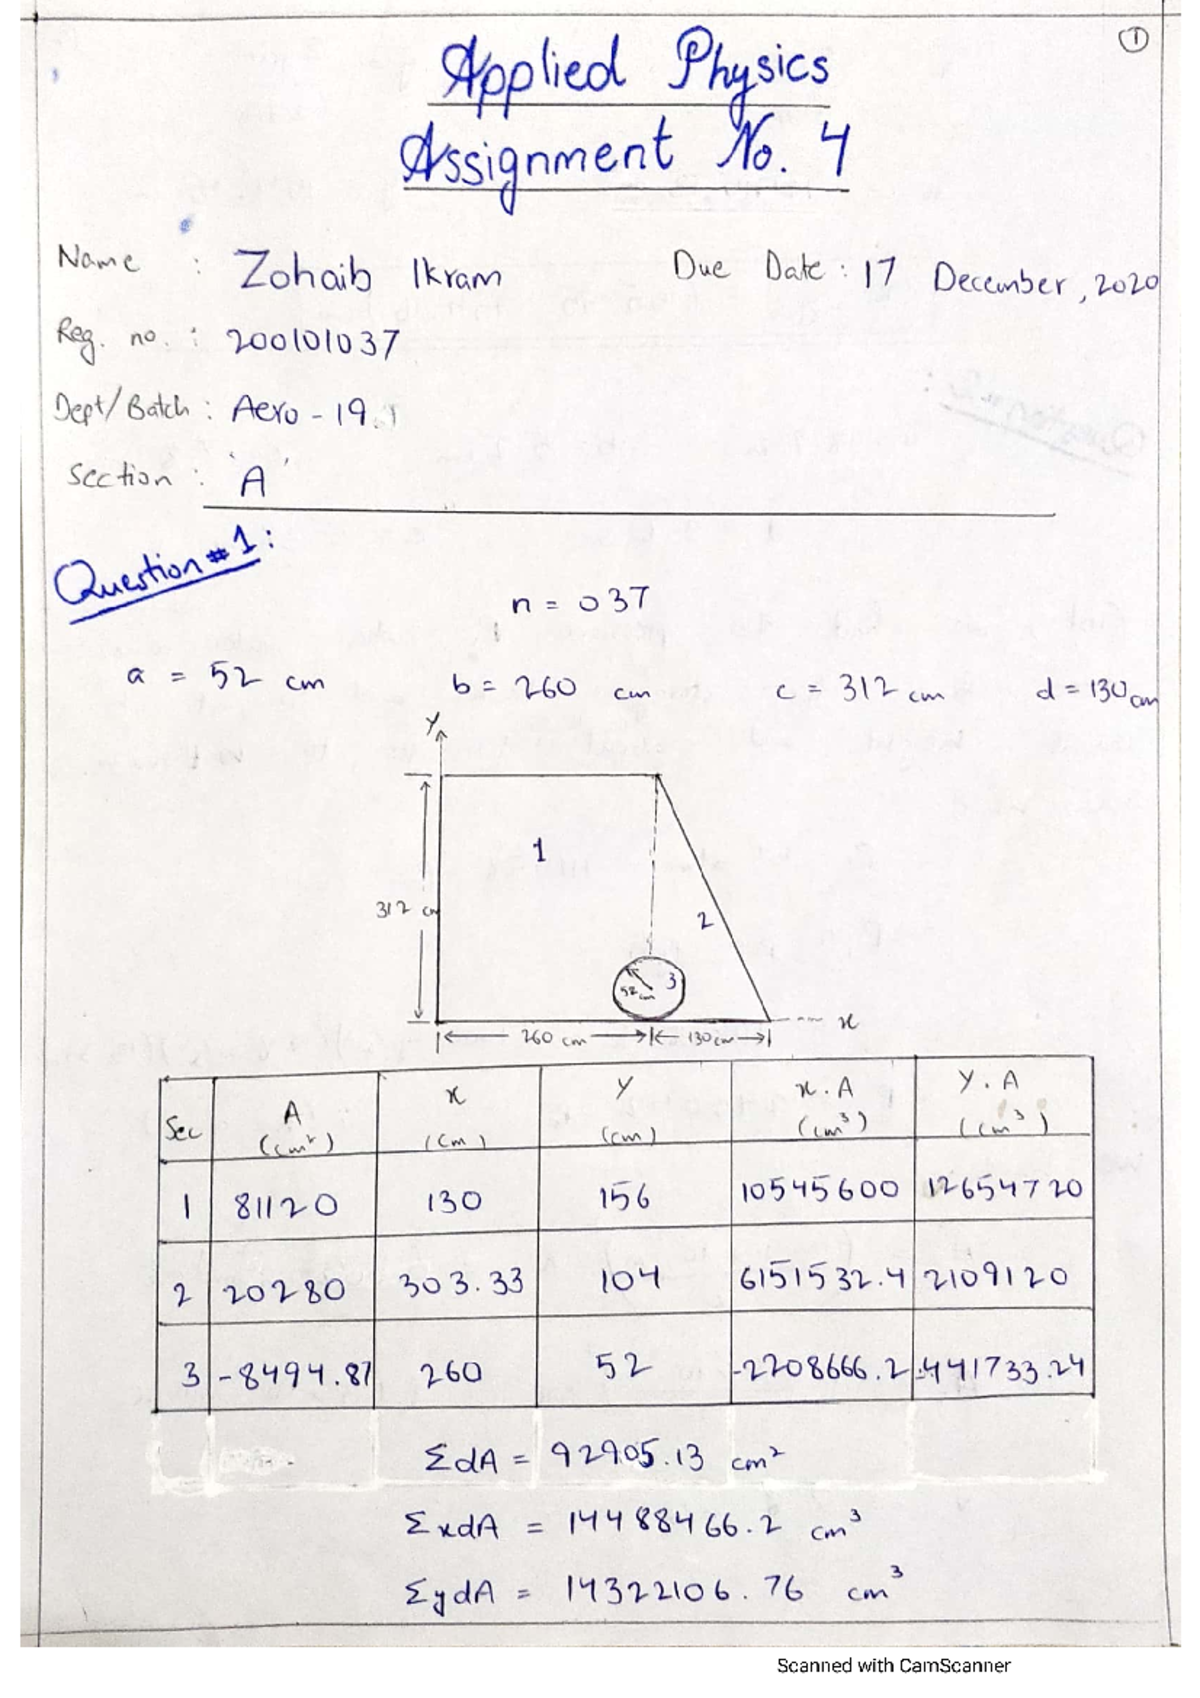 1
Applied Physics
Assignment No. 4
Name : Zohaib Ikram Due Date : 17 December, 2020
Reg. no. : 200101037
Dept/Batch : Aero - 19
Section : 'A'
Question # 1 :
n = 037
a = 52 cm b = 260 cm c = 312 cm d = 130 cm
Y
1
312 cm
2
52 cm 3
260 cm 130 cm x
Sec A (cm²) x (cm) Y (cm) x . A (cm³) Y . A (cm³)
1 81120 130 156 10545600 12654720
2 20280 303.33 104 6151532.4 2109120
3 -8494.87 260 52 -2208666.2 -441733.24
ΣdA = 92905.13 cm²
ΣxdA = 14488466.2 cm³
ΣydA = 14322106.76 cm³
Scanned with CamScanner